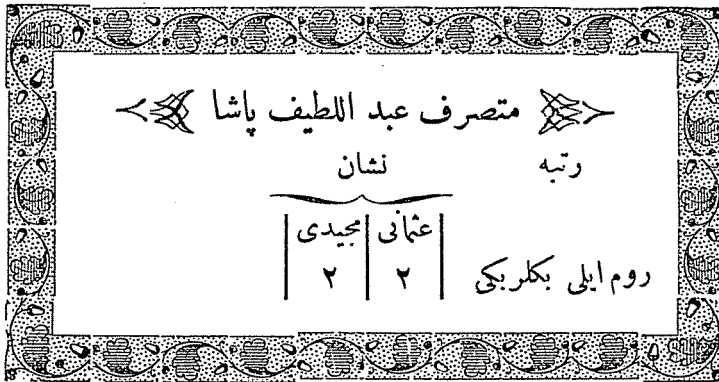 متصرف عبد اللطيف پاشا
رتبه نشان
عثمانی مجیدی
روم ایلی بكلربكی ۲ ۲